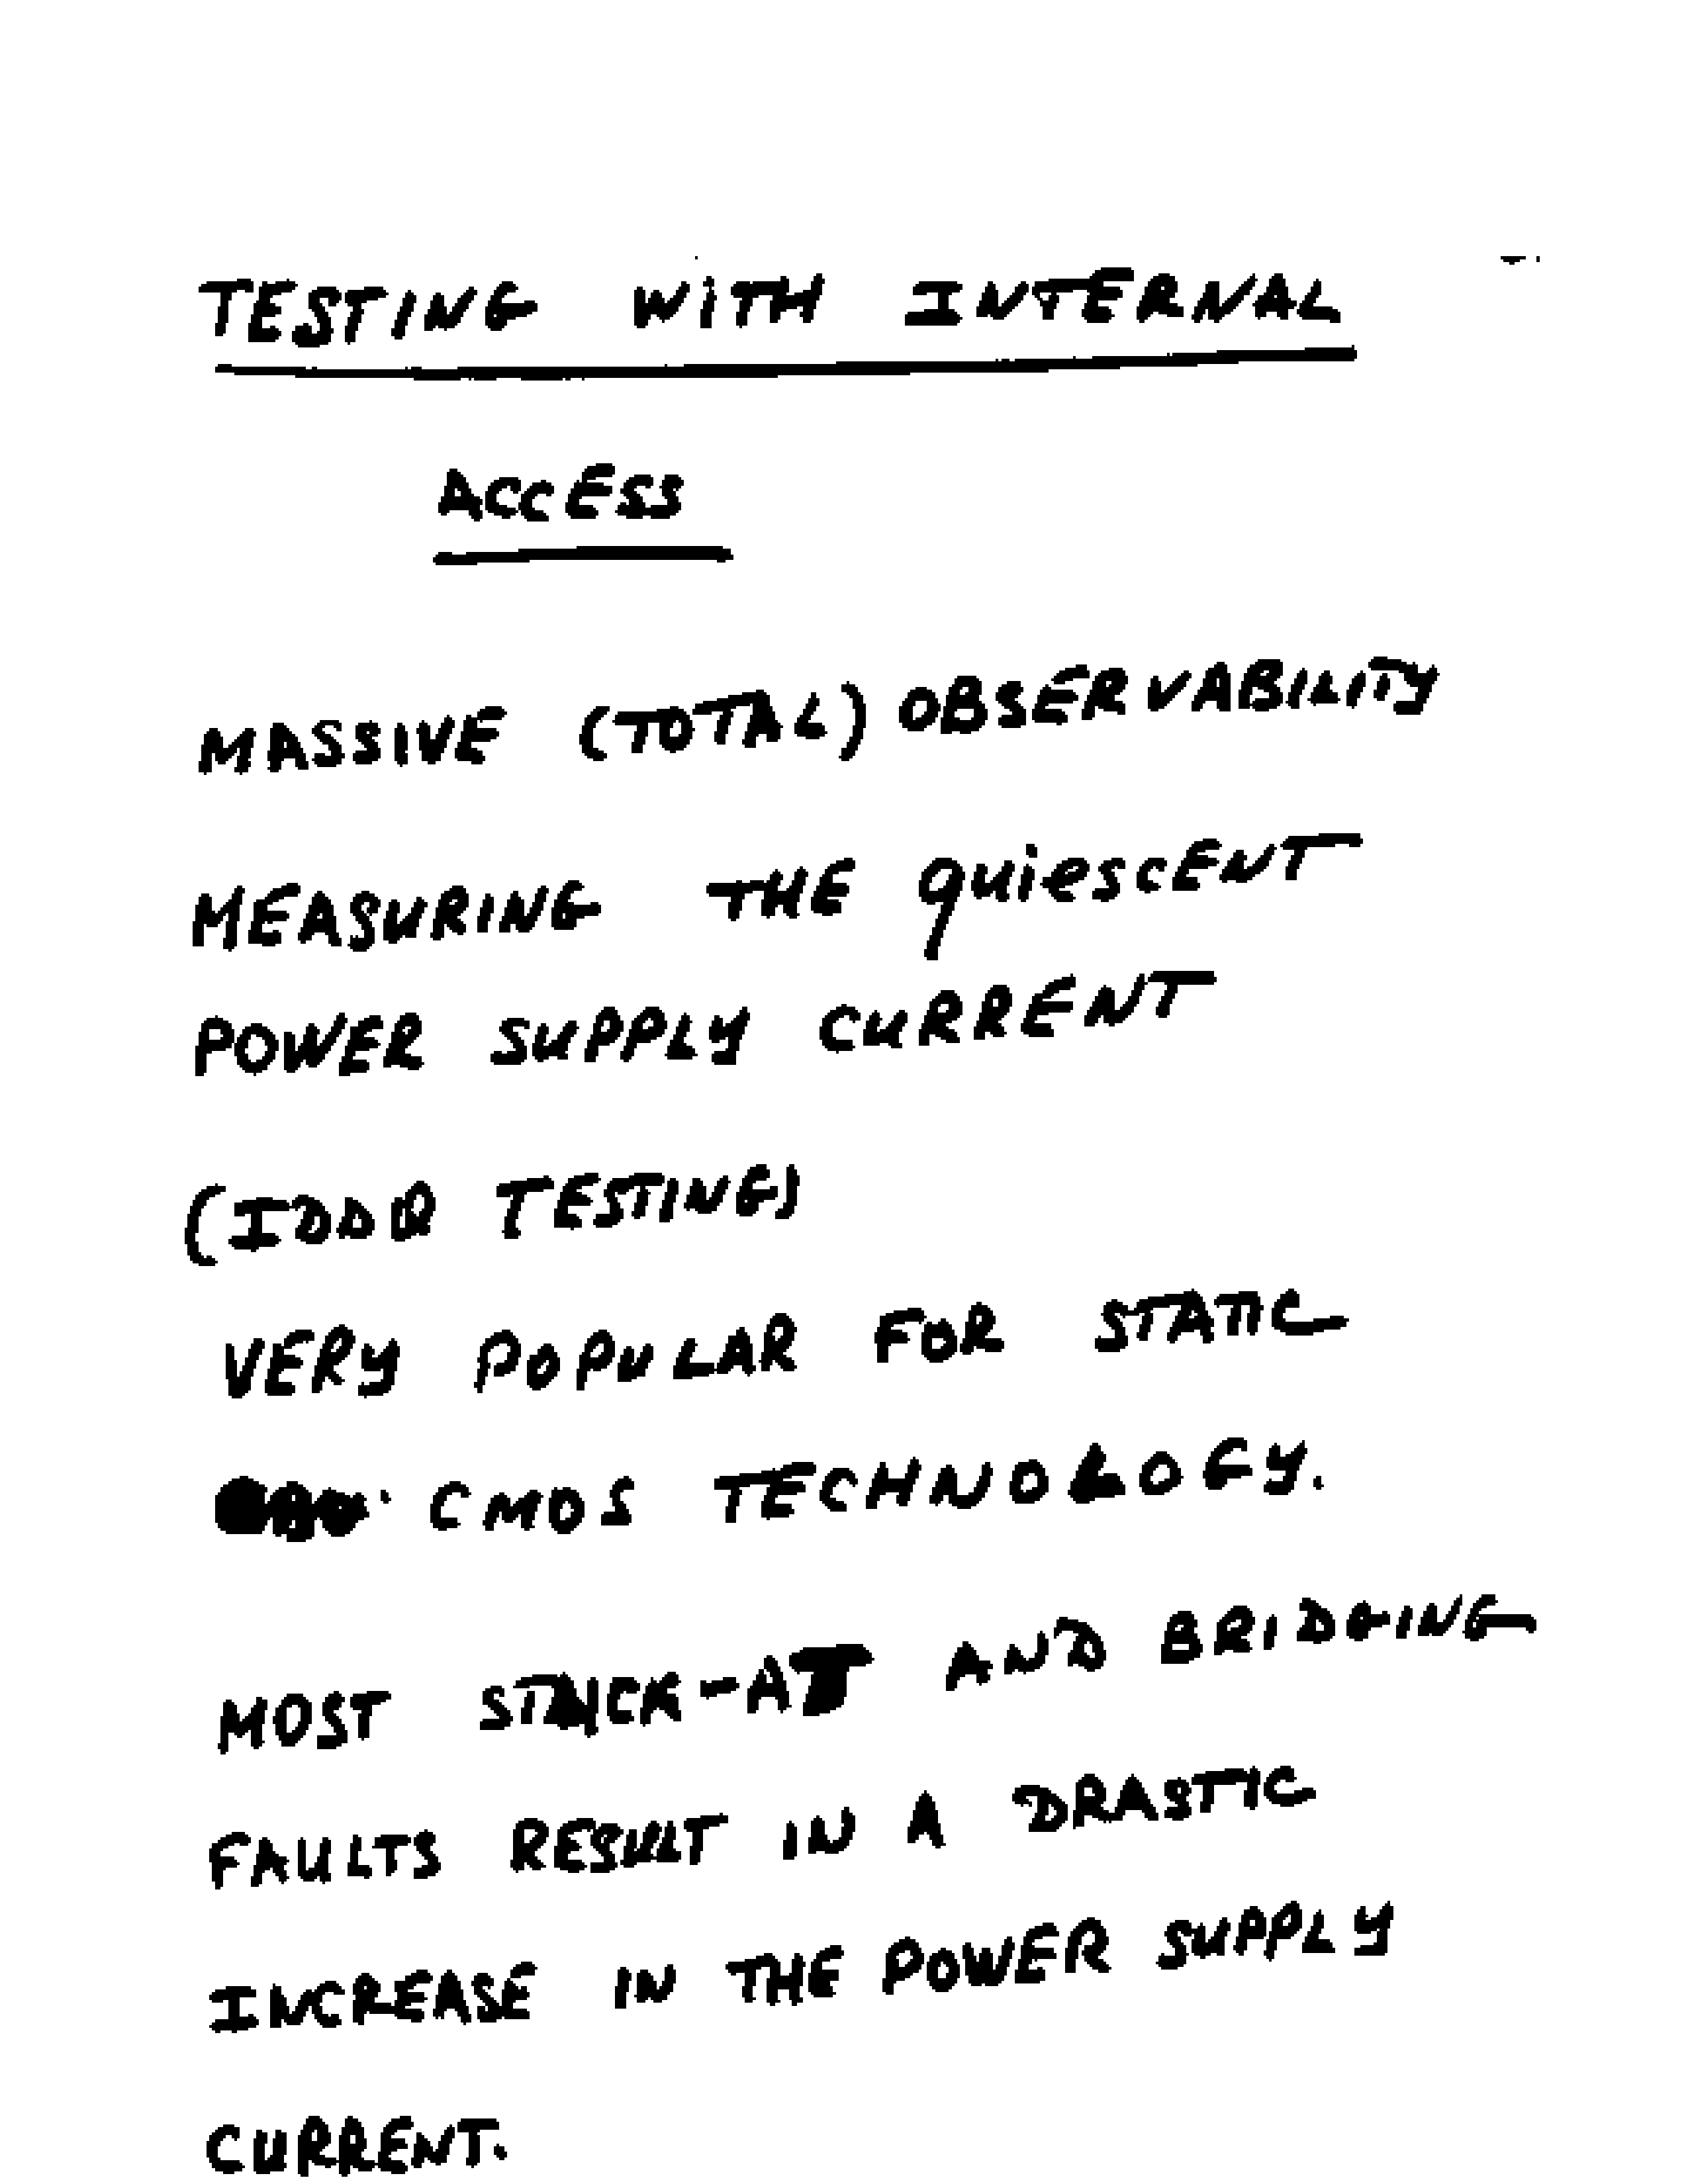 TESTING WITH INTERNAL
ACCESS
MASSIVE (TOTAL) OBSERVABILITY
MEASURING THE quiescENT
POWER SUPPLY CURRENT
(IDDQ TESTING)
VERY POPULAR FOR STATIC
CMOS TECHNOLOGY.
MOST STUCK-AT AND BRIDGING
FAULTS RESULT IN A DRASTIC
INCREASE IN THE POWER SUPPLY
CURRENT.